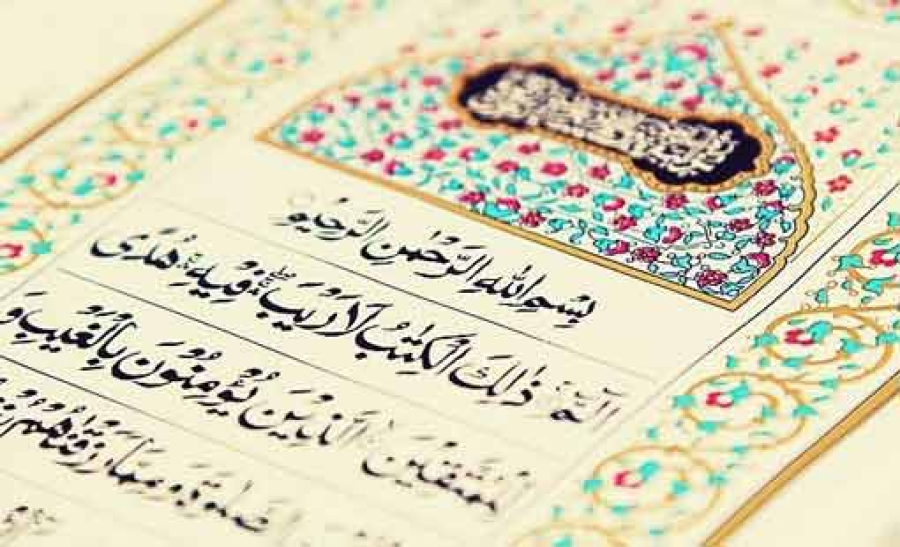 بِسْمِ اللّٰهِ الرَّحْمٰنِ الرَّحِيْمِ
الٓمّٓ ذٰلِكَ الْكِتٰبُ لَا رَيْبَ فِيْهِ هُدًى
لِّلْمُتَّقِيْنَ الَّذِيْنَ يُؤْمِنُوْنَ بِالْغَيْبِ وَ
الصَّلٰوةَ وَ مِمَّا رَزَقْنٰهُمْ